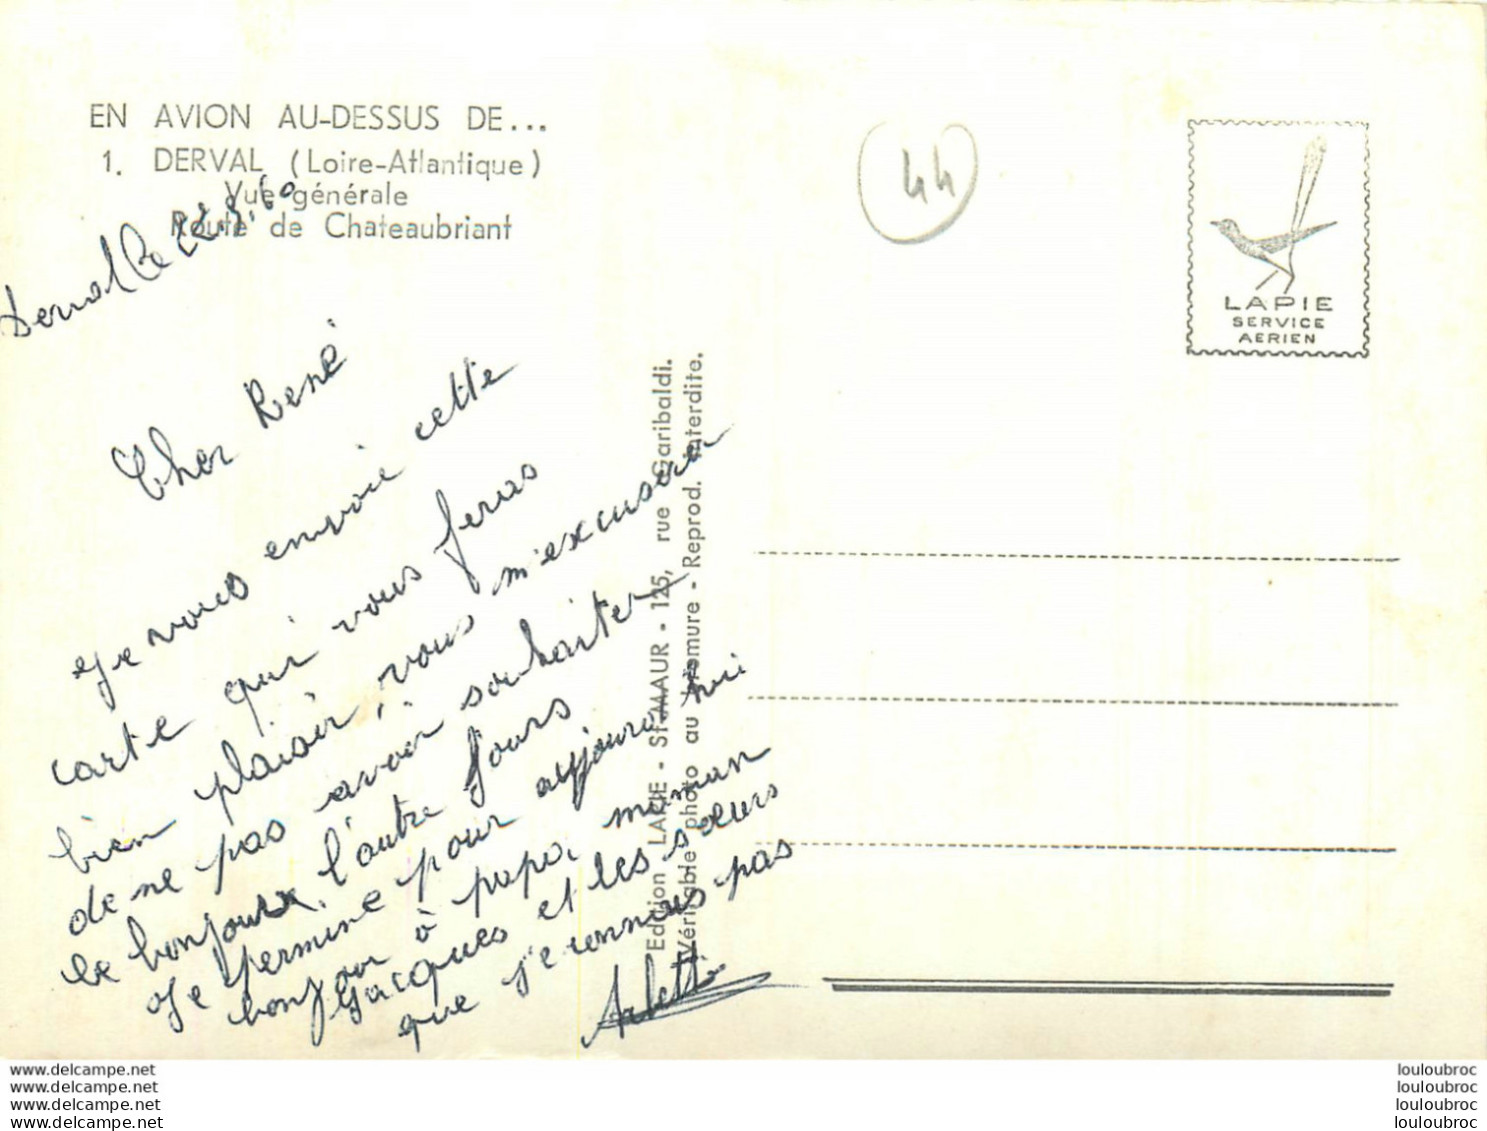 EN AVION AU-DESSUS DE...
1. DERVAL (Loire-Atlantique)
Vue générale
Route de Chateaubriant
44
LAPIE
SERVICE
AERIEN
Derval le 22.8.60
Cher René
Je vous envoie cette
carte qui vous feras
bien plaisir, vous m'excuserer
de ne pas avoir souhaiter
le bonjour, l'autre jours
Je termine pour aujourd hui
bonjour à papa, maman
Jacques et les sœurs
que je connais pas
Arlette
Edition LAPIE - ST-MAUR - 125, rue Garibaldi.
Véritable photo au bromure - Reprod. interdite.
www.delcampe.net
www.delcampe.net
www.delcampe.net
www.delcampe.net
louloubroc
louloubroc
louloubroc
louloubroc